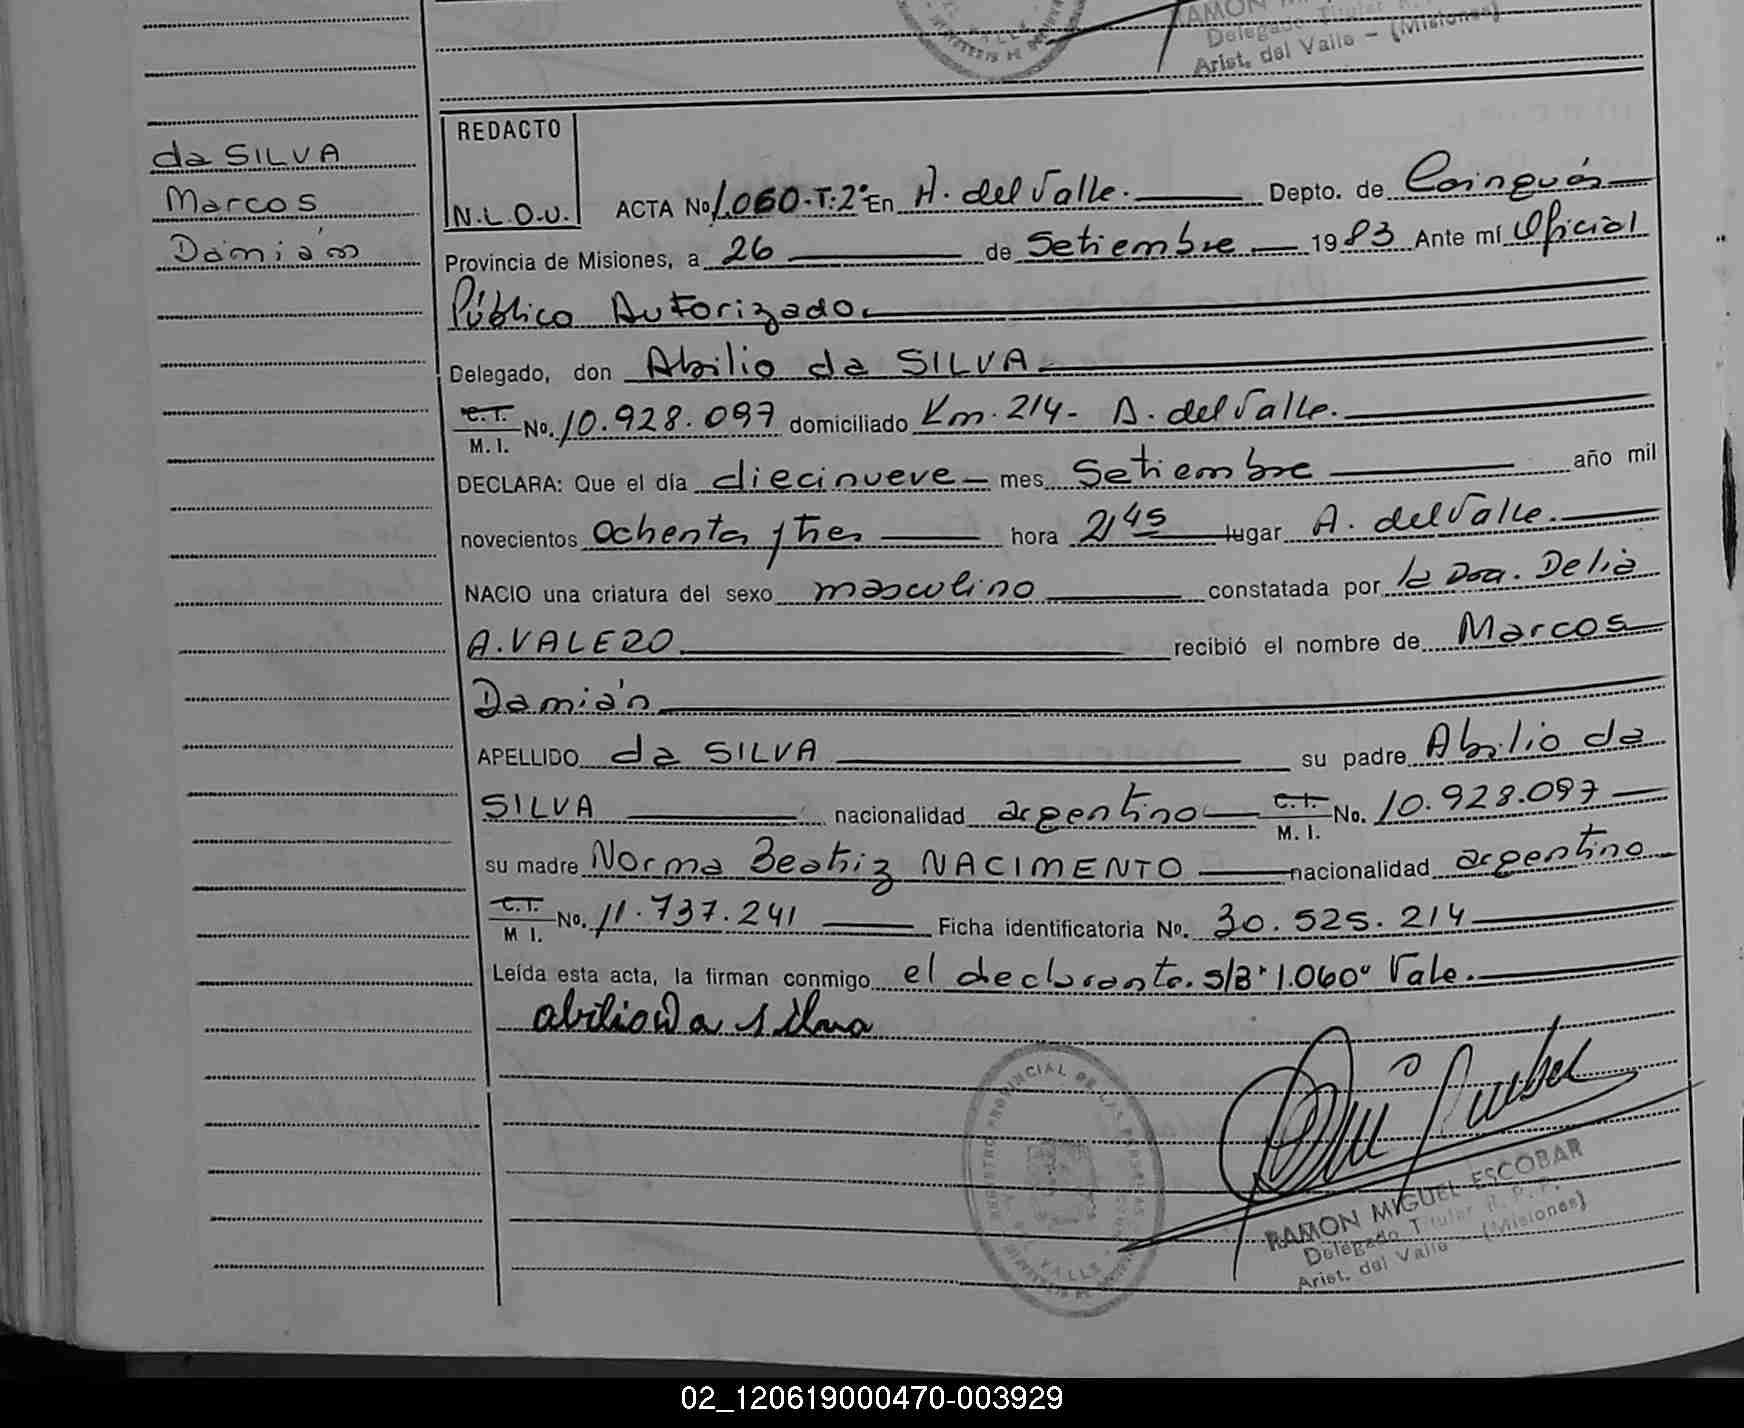 RAMON
Delegado Titular
Arist. del Valle - (Misiones)
da SILVA
Marcos
Damián
REDACTO
N.L.O.U.
ACTA No 1.060.T:2° En A. del Valle. Depto. de Cainguás
Provincia de Misiones, a 26 de Setiembre 1983 Ante mí Oficial
Público Autorizado.
Delegado, don Abilio da SILVA
C.I. M.I. No. 10.928.097 domiciliado Km. 214- A. del Valle.
DECLARA: Que el día diecinueve mes Setiembre año mil
novecientos ochenta y tres hora 21 45 lugar A. del Valle.
NACIO una criatura del sexo masculino constatada por la Dra. Delia
A. VALERO recibió el nombre de Marcos
Damián
APELLIDO da SILVA su padre Abilio da
SILVA nacionalidad argentino C.I. M.I. No. 10.928.097
su madre Norma Beatriz NACIMENTO nacionalidad argentino
C.I. M I. No. 11.737.241 Ficha identificatoria No. 30.525.214
Leída esta acta, la firman conmigo el declarante. S/B "1.060" Vale.
abilio Da silva
REGISTRO PROVINCIAL DE LAS PERSONAS
VALLE
RAMON MIGUEL ESCOBAR
Delegado Titular R. P. P.
Arist. del Valle - (Misiones)
02_120619000470-003929